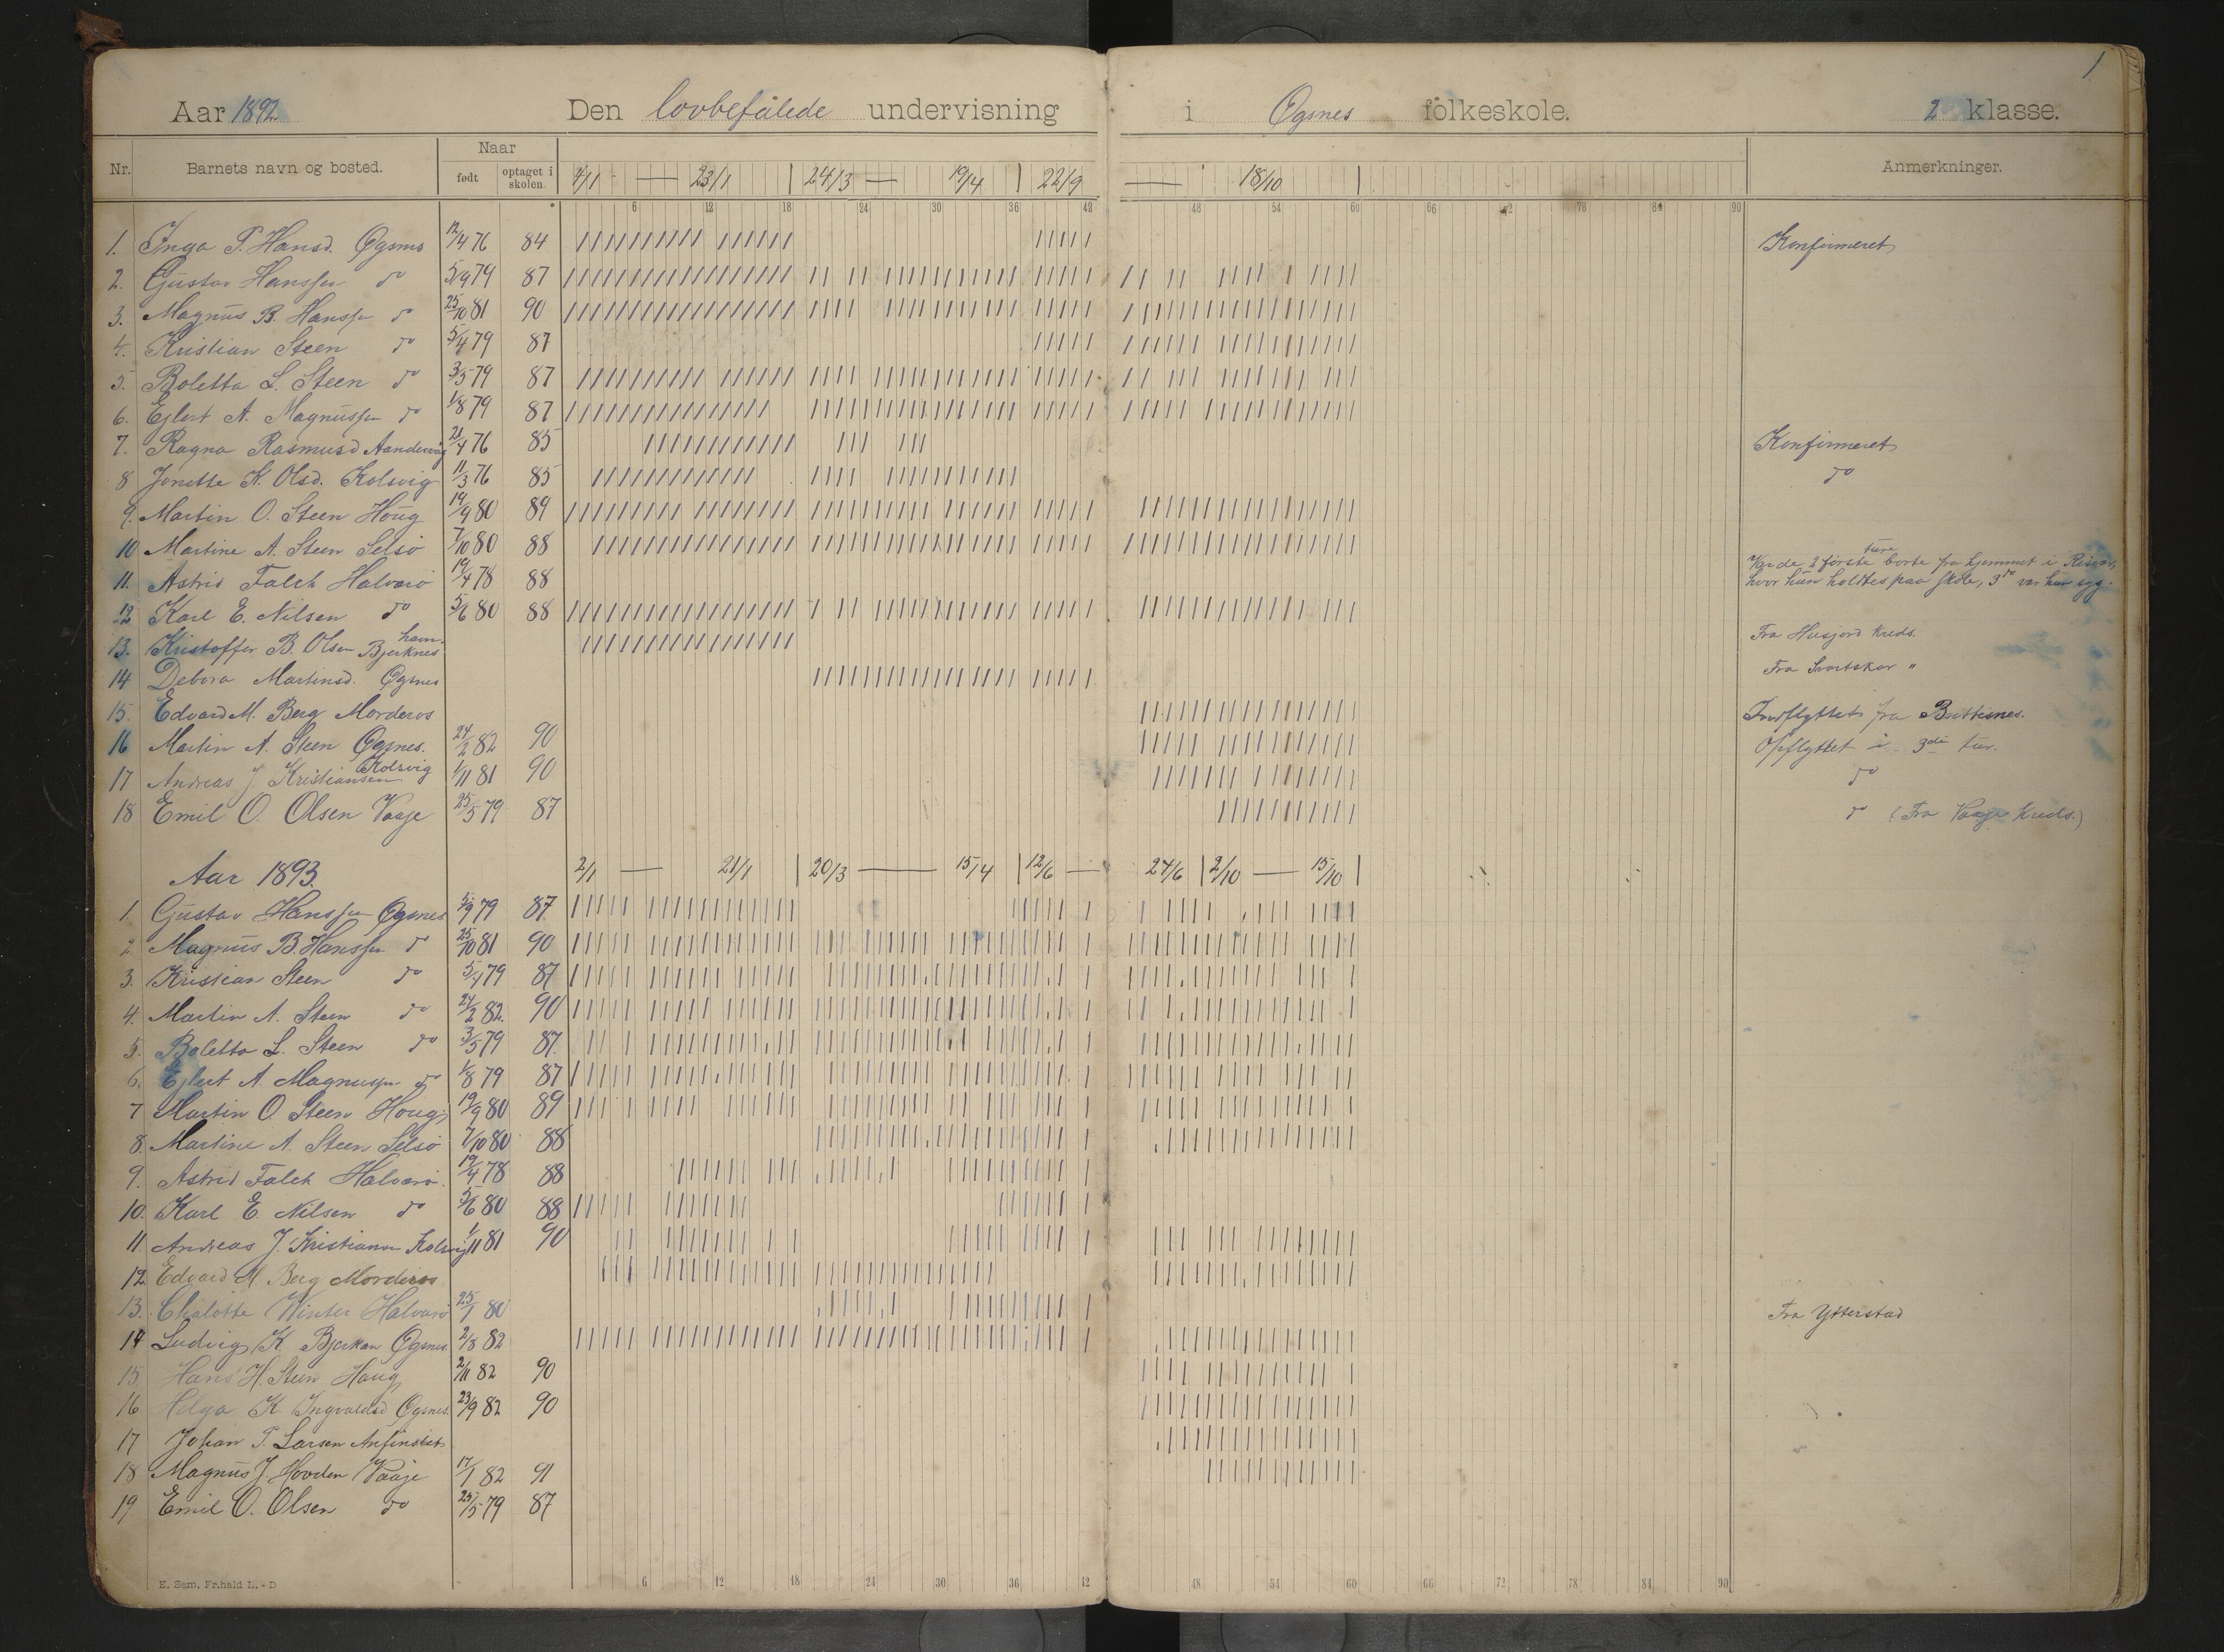 1
Aar 1892 Den lovbefalede undervisning i Øgsnes folkeskole. 2 klasse.
Nr. Barnets navn og bosted. Naar født optaget i skolen. 4/1 — 23/1 24/3 — 19/4 22/9 — 18/10 Anmerkninger.
6 12 18 24 30 36 42 48 54 60 66 72 78 84 90
1. Inga P. Hansd. Øgsnes 12/4 76 84 Konfirmeret
2. Gustav Hanssen do 5/9 79 87
3. Magnus B. Hanssen do 25/10 81 90
4. Kristian Steen do 5/4 79 87
5. Boletta L. Steen do 3/5 79 87
6. Ejlert A. Magnussen do 1/8 79 87
7. Ragna Rasmusd 21/4 76 85 Konfirmeret
8 Jonette K. Olsd. Kolsvig 11/3 76 85 do
9. Martin O. Steen Houg 19/9 80 89
10 Martine A. Steen Selsø 7/10 80 88
11. Astrid Falch Halvarø 19/4 78 88 Var de 2 første ture borte fra hjemmet i
hvor hun holdtes paa skole, 3de var hun syg.
12 Karl E. Nilsen do 5/6 80 88
13. Kristoffer B. Olsen Bjerknes Fra Husjord kreds.
14 Debora Martinsd. Øgsnes Fra Svartskar "
15. Edvard M. Berg Morderos Indflyttet fra
16 Martin A. Steen Øgsnes. 24/2 82 90 Opflyttet i 3die tur.
17 Andreas J. Kristiansen Kolsvig 1/11 81 90 do
18 Emil O. Olsen Vaaje 25/5 79 87 do (Fra Vaaje Kreds.)
Aar 1893. 2/1 — 21/1 20/3 — 15/4 12/6 — 24/6 2/10 — 15/10
1. Gustav Hanssen Øgsnes 5/9 79 87
2. Magnus B. Hanssen do 25/10 81 90
3. Kristian Steen do 5/4 79 87
4. Martin A. Steen do 24/2 82. 90
5. Boletta L. Steen do 3/5 79 87.
6. Ejlert A. Magnussen do 1/8 79 87
7 Martin O. Steen Houg 19/9 80 89
8. Martine A. Steen Selsø 7/10 80 88
9. Astrid Falch Halvarø. 19/4 78 88
10. Karl E. Nilsen do 5/6 80 88
11. Andreas J. Kristiansen Kolsvig 1/11 81 90
12 Edvard M. Berg Morderos
13. Chalotte Winter Halvarø 25/1 80 Fra Ytterstad
14 Ludvig K. Bjerkan Øgsnes. 2/8 82
15. Hans H. Steen Haug 2/11 82 90
16 Helga K. Ingvaldsd Øgsnes. 23/9 82 90
17 Johan P. Larsen
18 Magnus J. Hovden Vaaje 17/1 82 91
19 Emil O. Olsen do 25/5 79 87
E. Sem, Fr.hald L. - D
6 12 18 24 30 36 42 48 54 60 66 72 78 84 90